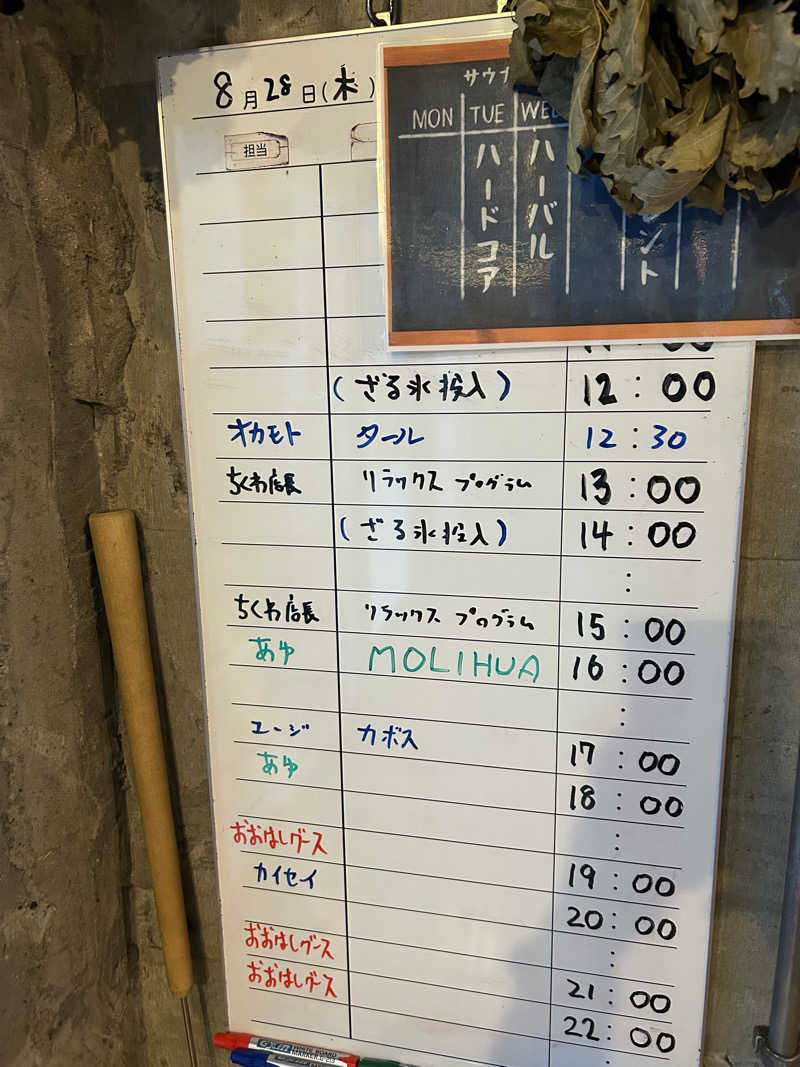 8月28日(木)
担当
サウナ
MON TUE WED
ハードコア
ハーバル
ント
(ざる氷投入) 12:00
オカモト タール 12:30
ちくわ店長 リラックス プログラム 13:00
(ざる氷投入) 14:00
:
ちくわ店長 リラックス プログラム 15:00
あゆ MOLIHUA 16:00
:
ユージ カボス 17:00
あゆ 18:00
:
おおはしグース
カイセイ 19:00
20:00
おおはしグース :
おおはしグース 21:00
22:00
: